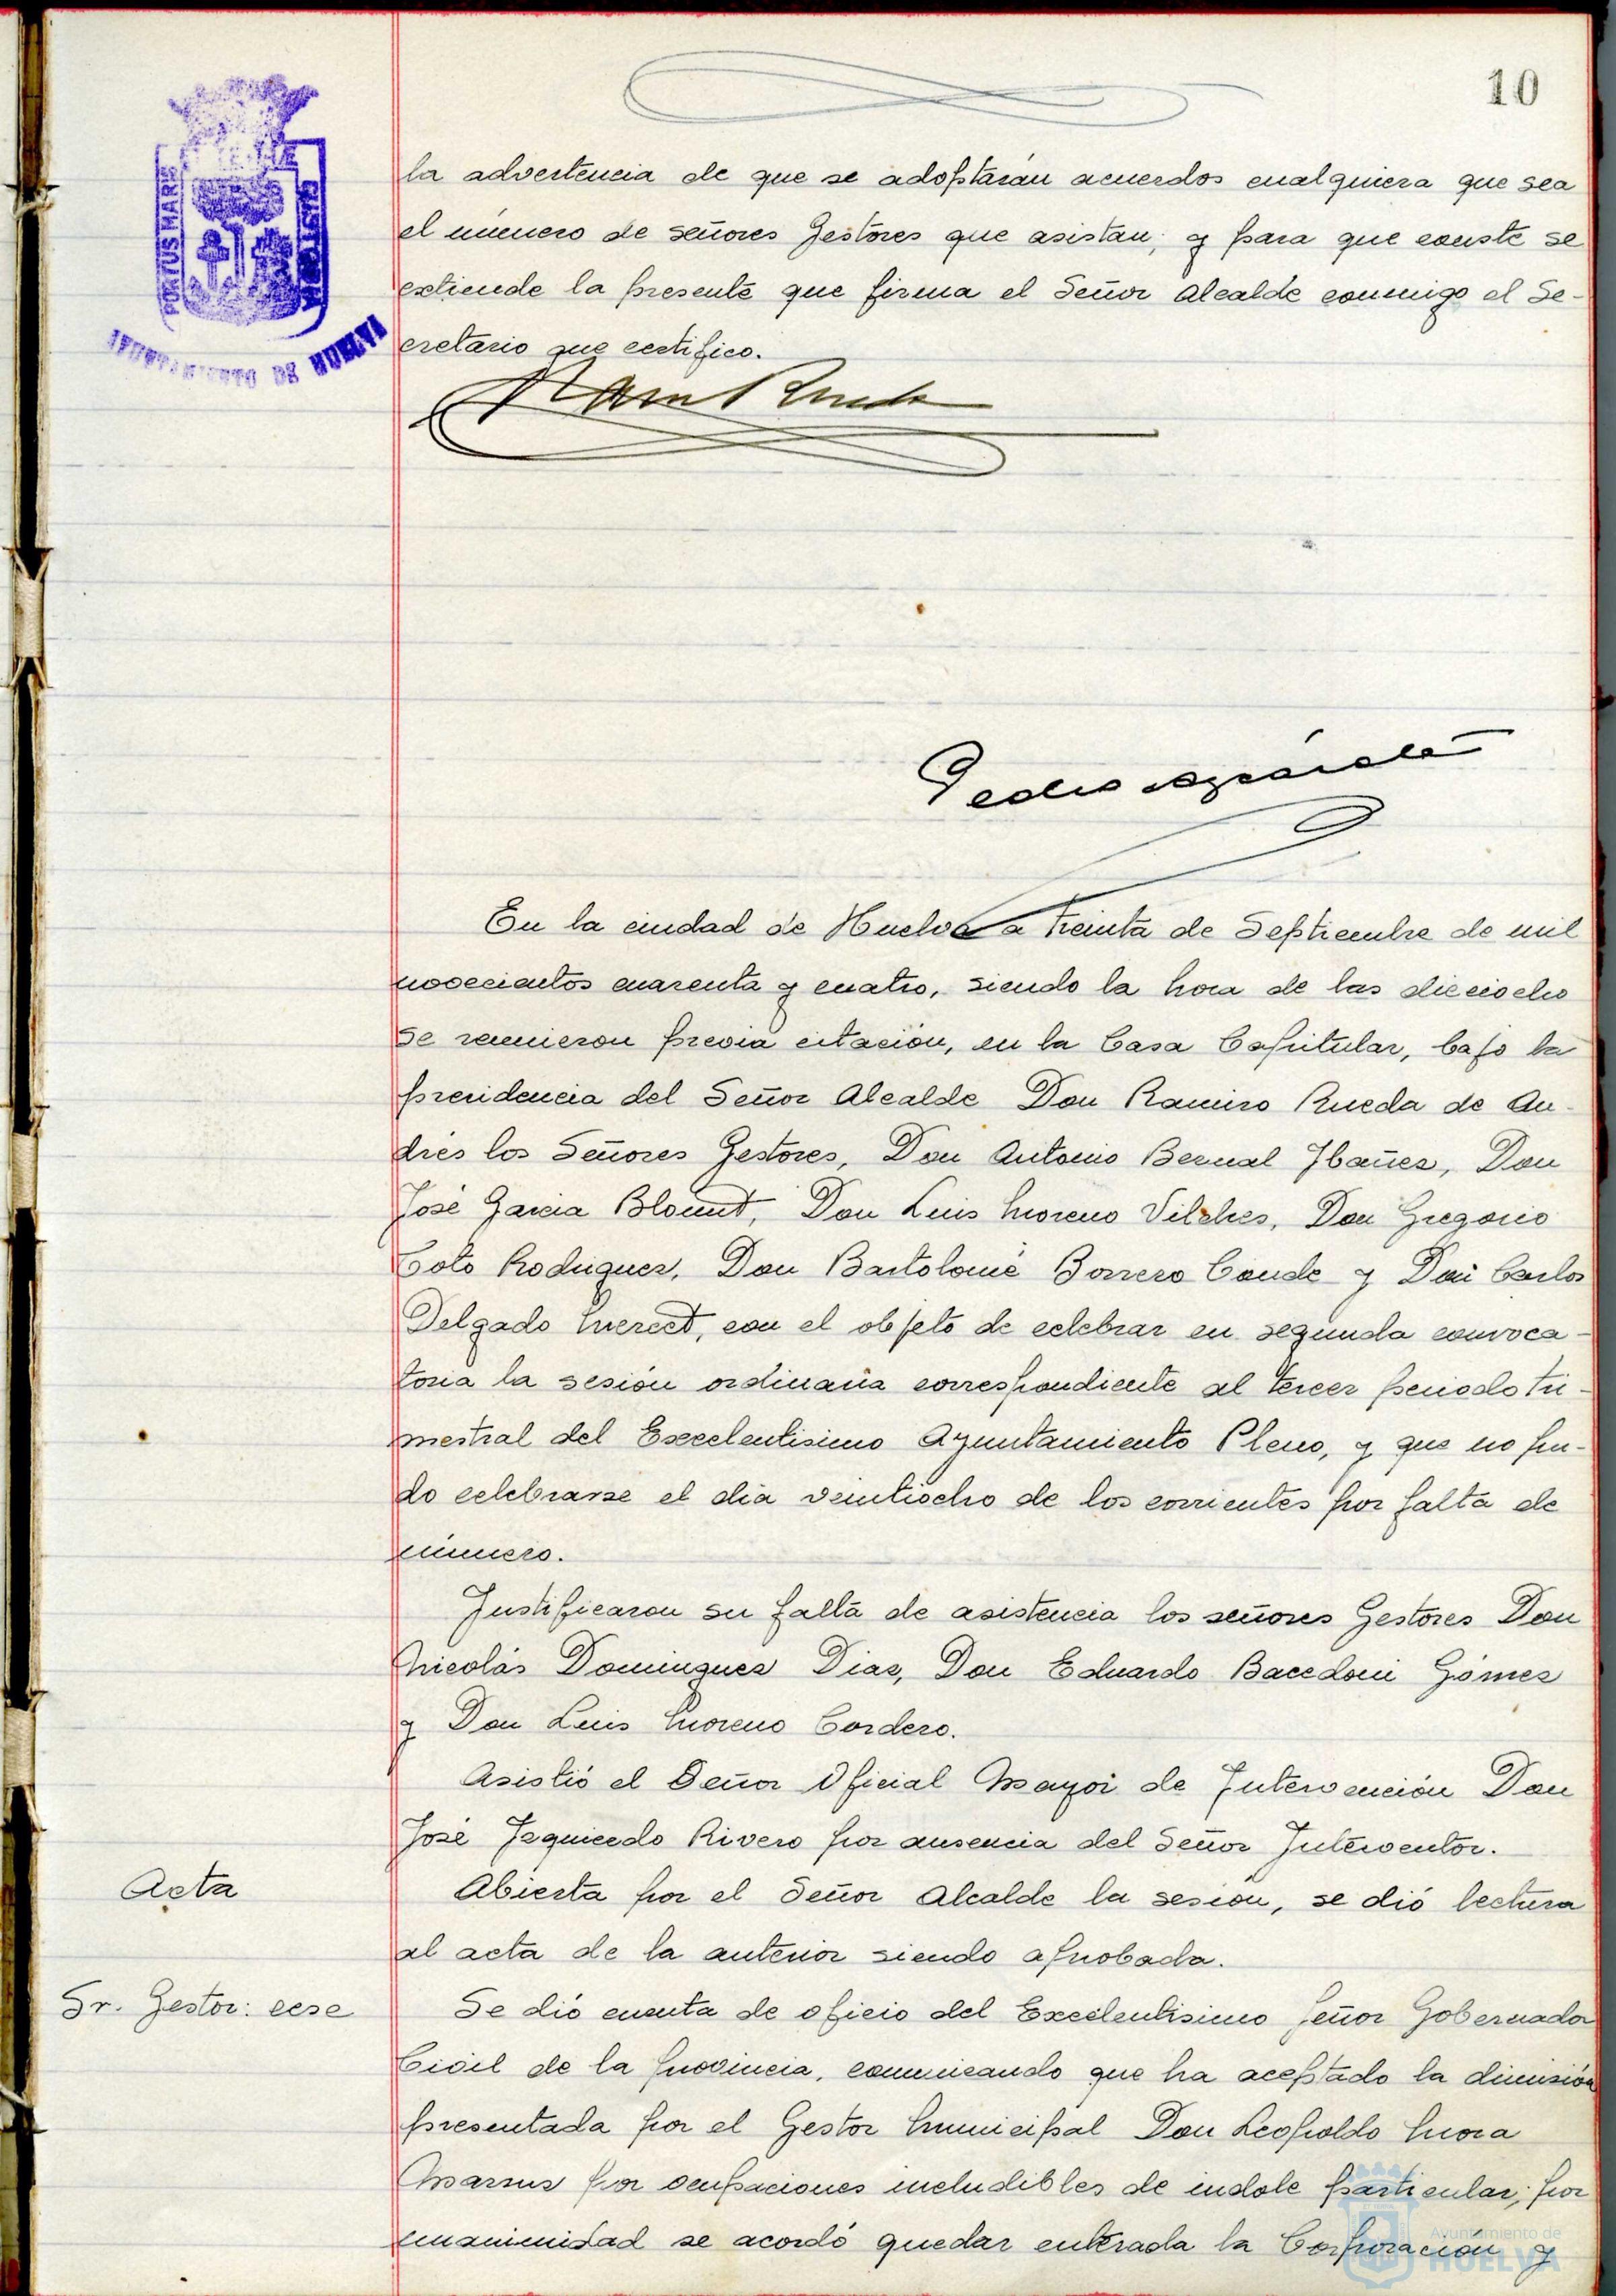 10
PORTUS MARIS
ET TERRE
CUSTODIA
AYUNTAMIENTO DE HUELVA
la advertencia de que se adoptarán acuerdos cualquiera que sea
el número de señores Gestores que asistan; y para que conste se
extiende la presente que firma el Señor Alcalde conmigo el Se-
cretario que certifico.
En la ciudad de Huelva a treinta de Septiembre de mil
novecientos cuarenta y cuatro, siendo la hora de las dieciocho
se reunieron previa citación, en la Casa Capitular, bajo la
presidencia del Señor Alcalde Don Ramiro Rueda de An-
drés los Señores Gestores, Don Antonio Bernal Ibañez, Don
José Garcia Blount, Don Luis Moreno Vilches, Don Gregorio
Coto Rodriguez, Don Bartolomé Borrero Conde y Don Carlos
Delgado Merect, con el objeto de celebrar en segunda convoca-
toria la sesión ordinaria correspondiente al tercer periodo tri-
mestral del Excelentisimo Ayuntamiento Pleno, y que no pu-
do celebrarse el dia veintiocho de los corrientes por falta de
número.
Justificaron su falta de asistencia los señores Gestores Don
Nicolás Dominguez Diaz, Don Eduardo Bacedoni Gómez
y Don Luis Moreno Cordero.
Asistió el Señor Oficial Mayor de Intervención Don
José Izquierdo Rivero por ausencia del Señor Interventor.
Acta
Abierta por el Señor Alcalde la sesión, se dió lectura
al acta de la anterior siendo aprobada.
Sr. Gestor: cese
Se dió cuenta de oficio del Excelentisimo Señor Gobernador
Civil de la provincia, comunicando que ha aceptado la dimisión
presentada por el Gestor Municipal Don Leopoldo Mora
por ocupaciones ineludibles de indole particular; por
unanimidad se acordó quedar enterada la Corporación y
Ayuntamiento de
HUELVA